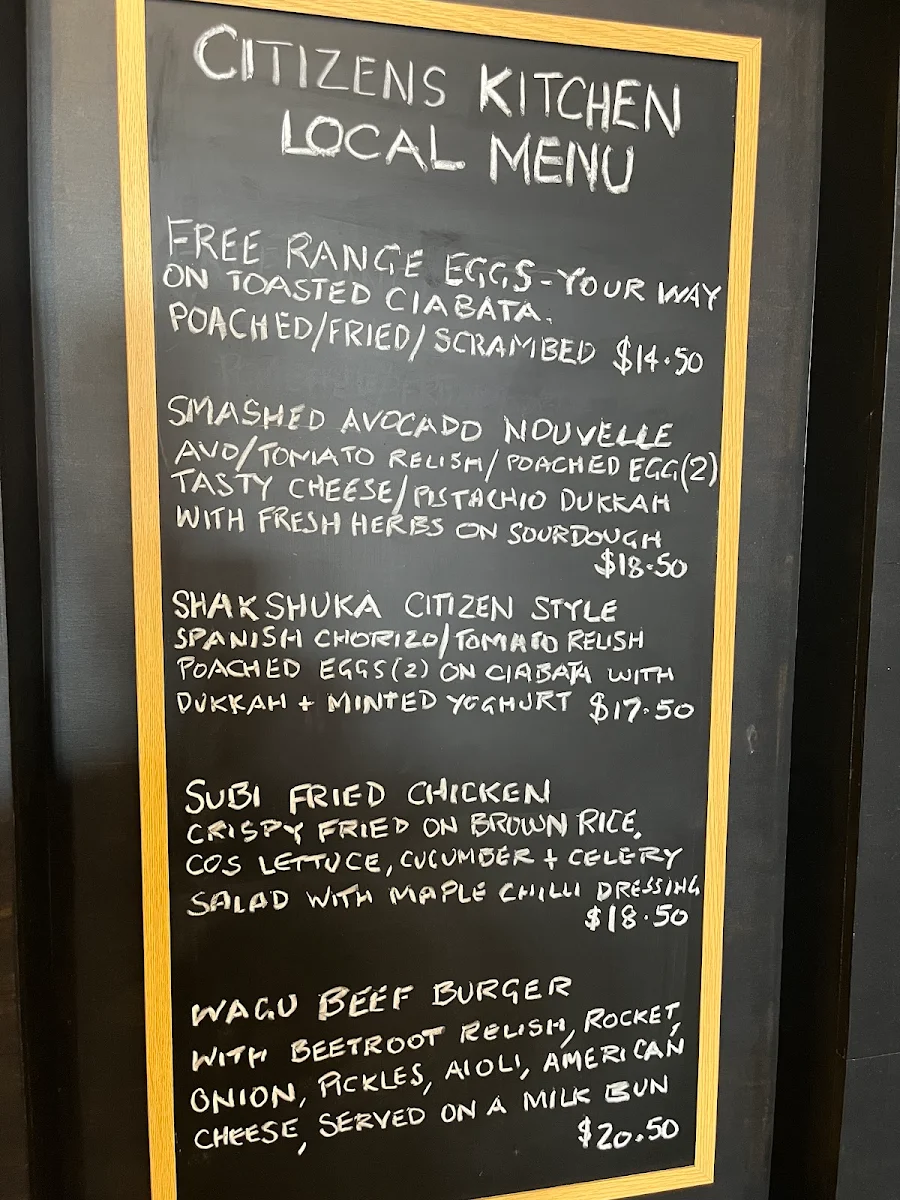 CITIZENS KITCHEN
LOCAL MENU
FREE RANGE EGGS - YOUR WAY
ON TOASTED CIABATA.
POACHED/FRIED/SCRAMBED $14.50
SMASHED AVOCADO NOUVELLE
AVO/TOMATO RELISH/POACHED EGG(2)
TASTY CHEESE/PISTACHIO DUKKAH
WITH FRESH HERBS ON SOURDOUGH
$18.50
SHAKSHUKA CITIZEN STYLE
SPANISH CHORIZO/TOMATO RELISH
POACHED EGGS(2) ON CIABATA WITH
DUKKAH + MINTED YOGHURT $17.50
SUBI FRIED CHICKEN
CRISPY FRIED ON BROWN RICE,
COS LETTUCE, CUCUMBER + CELERY
SALAD WITH MAPLE CHILLI DRESSING
$18.50
WAGU BEEF BURGER
WITH BEETROOT RELISH, ROCKET,
ONION, PICKLES, AIOLI, AMERICAN
CHEESE, SERVED ON A MILK BUN
$20.50